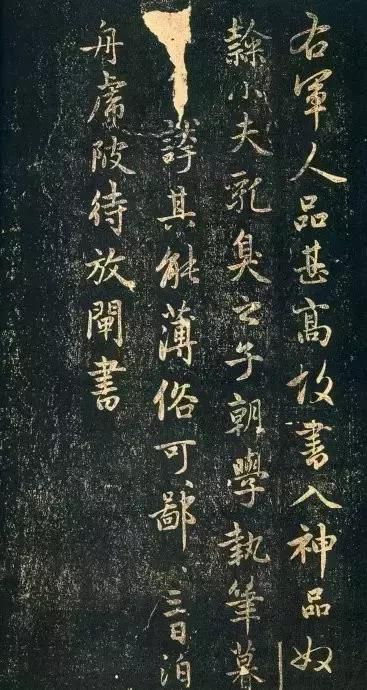 右軍人品甚高故書入神品奴
隸小夫乳臭之子朝學執筆暮
誇其能薄俗可〻鄙〻三日泊
舟虎陂待放閘書